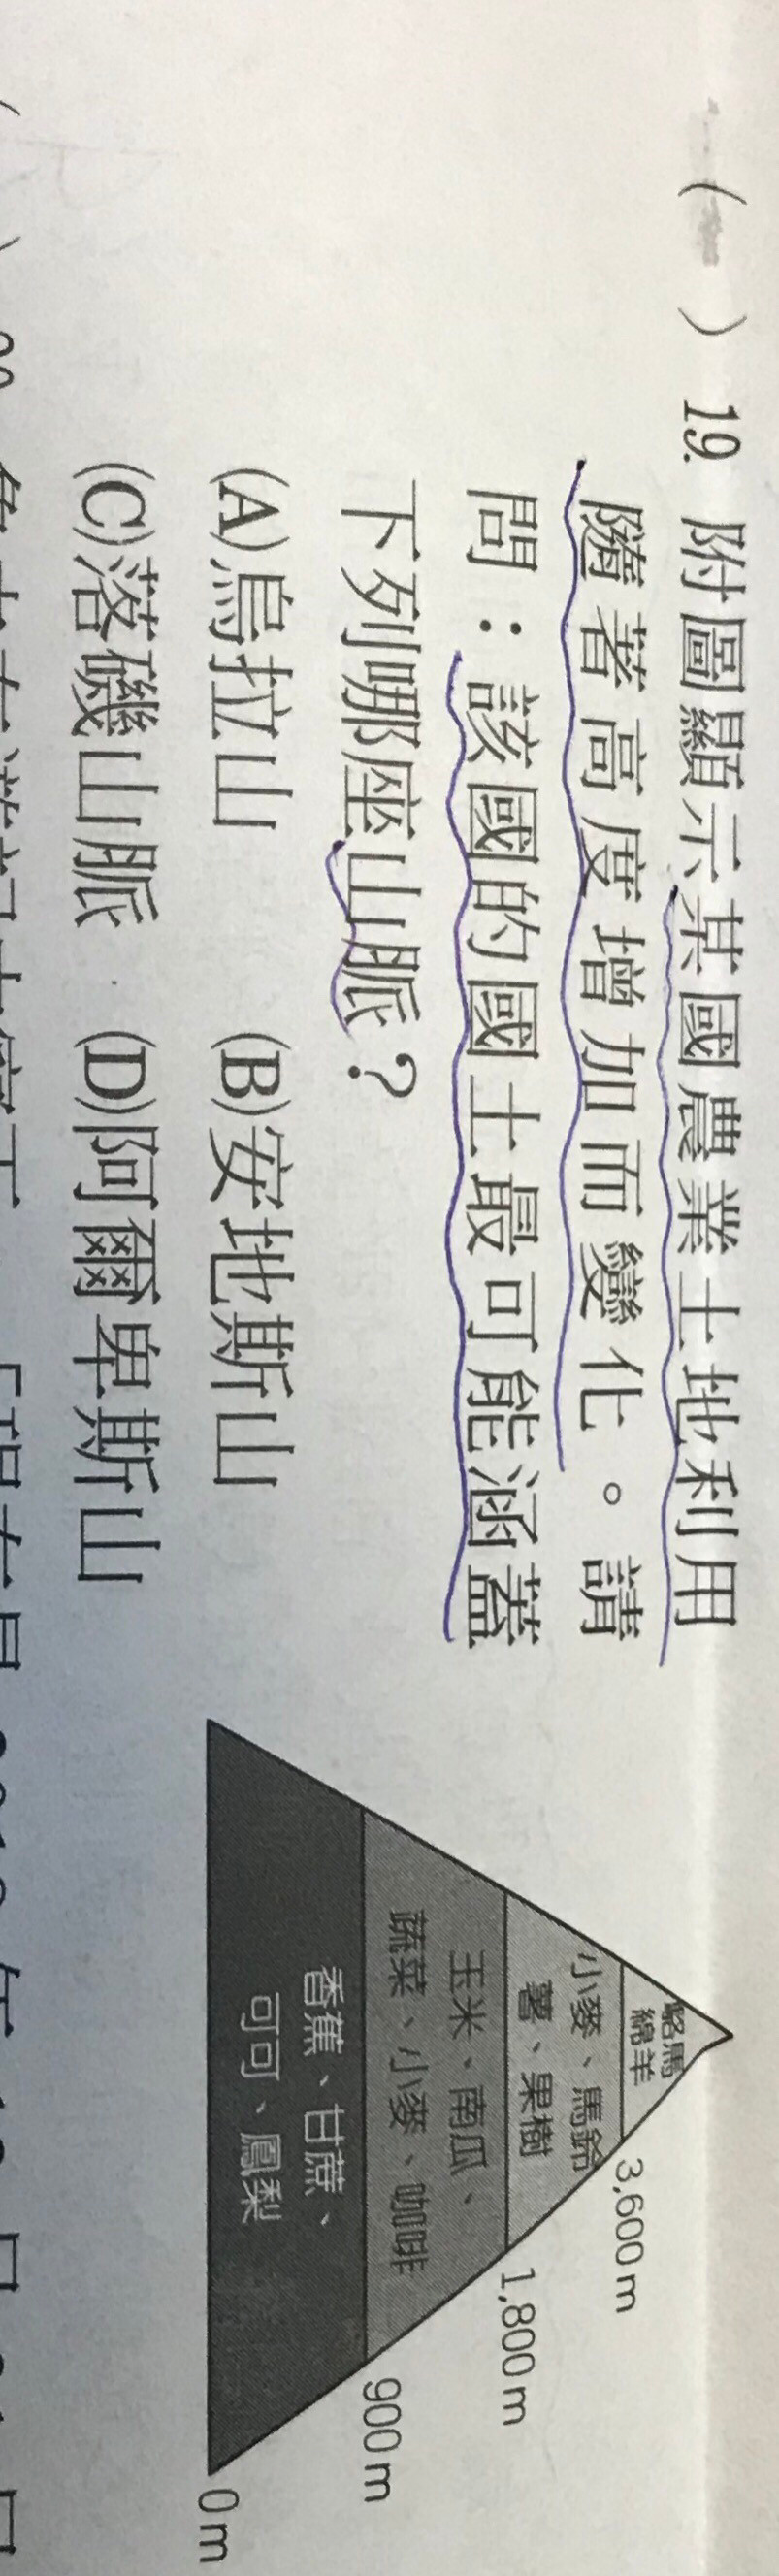 ( ) 19. 附圖顯示某國農業土地利用
隨著高度增加而變化。請
問：該國的國土最可能涵蓋
下列哪座山脈？
(A)烏拉山 (B)安地斯山
(C)落磯山脈 (D)阿爾卑斯山
駱馬
綿羊
3,600 m
小麥、馬鈴
薯、果樹
1,800 m
玉米、南瓜、
蔬菜、小麥、咖啡
900 m
香蕉、甘蔗、
可可、鳳梨
0 m